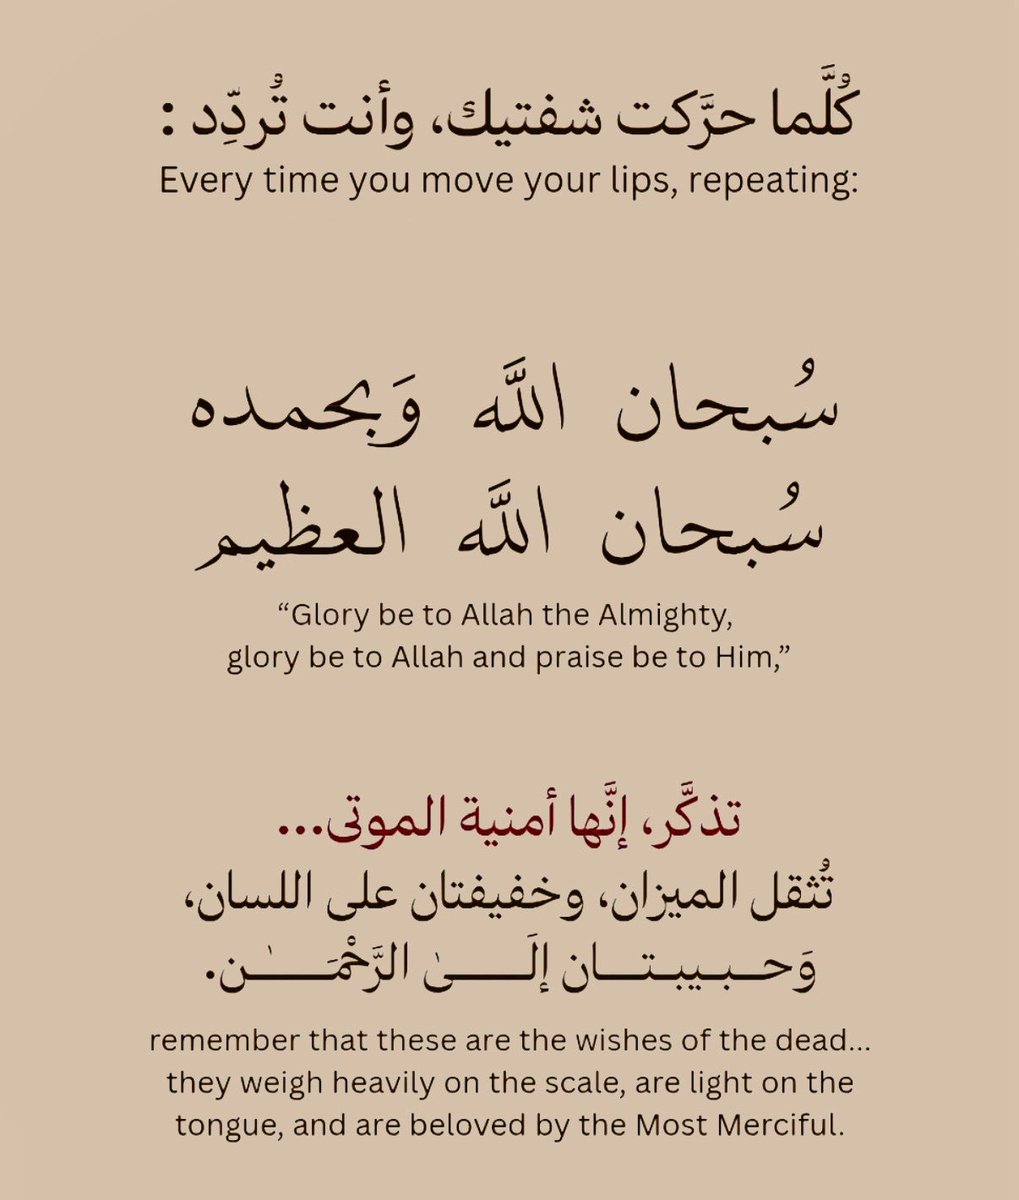 كُلَّما حرَّكت شفتيك، وأنت تُردِّد :
Every time you move your lips, repeating:
سُبحان اللَّه وَبحمده
سُبحان اللَّه العظيم
“Glory be to Allah the Almighty,
glory be to Allah and praise be to Him,”
تذكَّر، إنَّها أمنية الموتى...
تُثقل الميزان، وخفيفتان على اللسان،
وَحـــبـيبـتـــان إلَـــــىٰ الرَّحْمَـــــٰـن.
remember that these are the wishes of the dead...
they weigh heavily on the scale, are light on the
tongue, and are beloved by the Most Merciful.